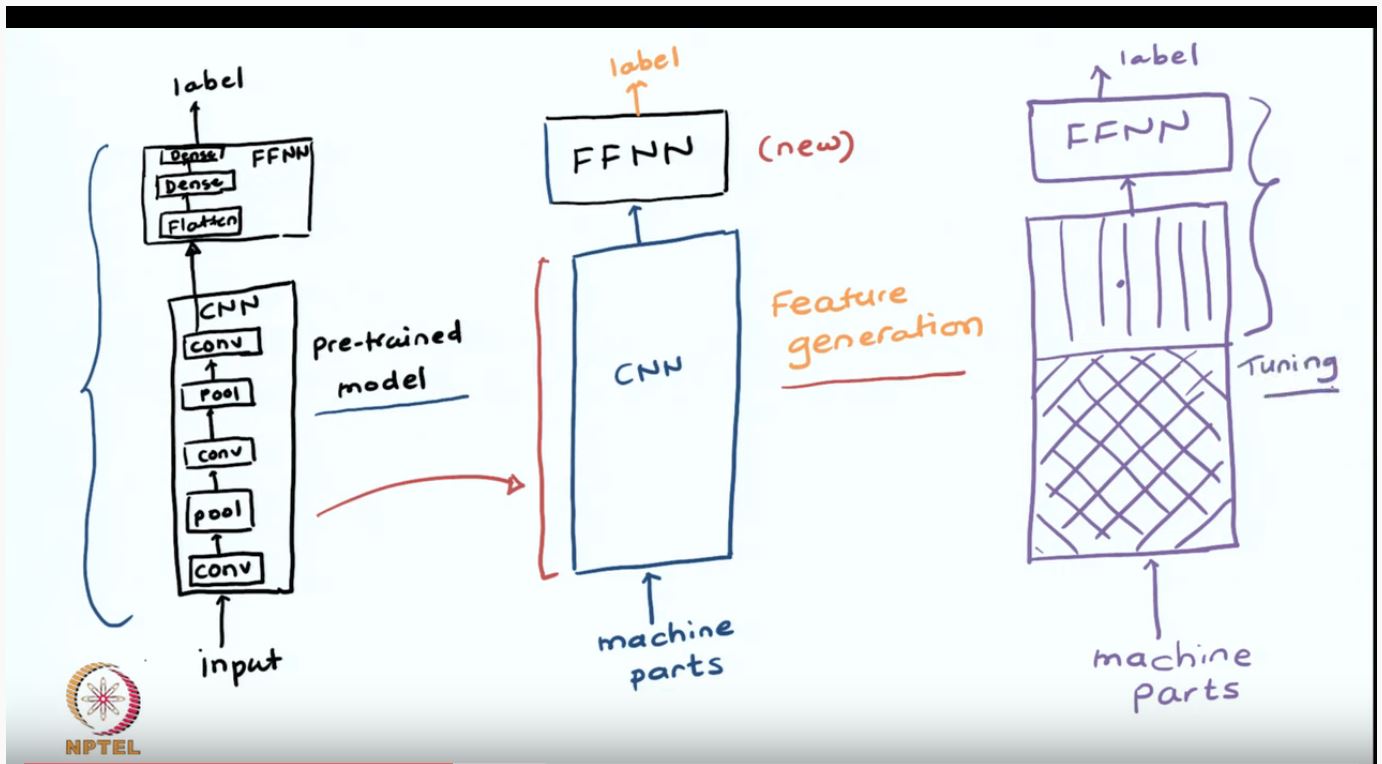 label
FFNN
Dense
Dense
Flatten
CNN
conv
pool
conv
pool
conv
input
pre-trained
model
label
FFNN
(new)
CNN
Feature
generation
machine
parts
label
FFNN
Tuning
machine
parts
NPTEL